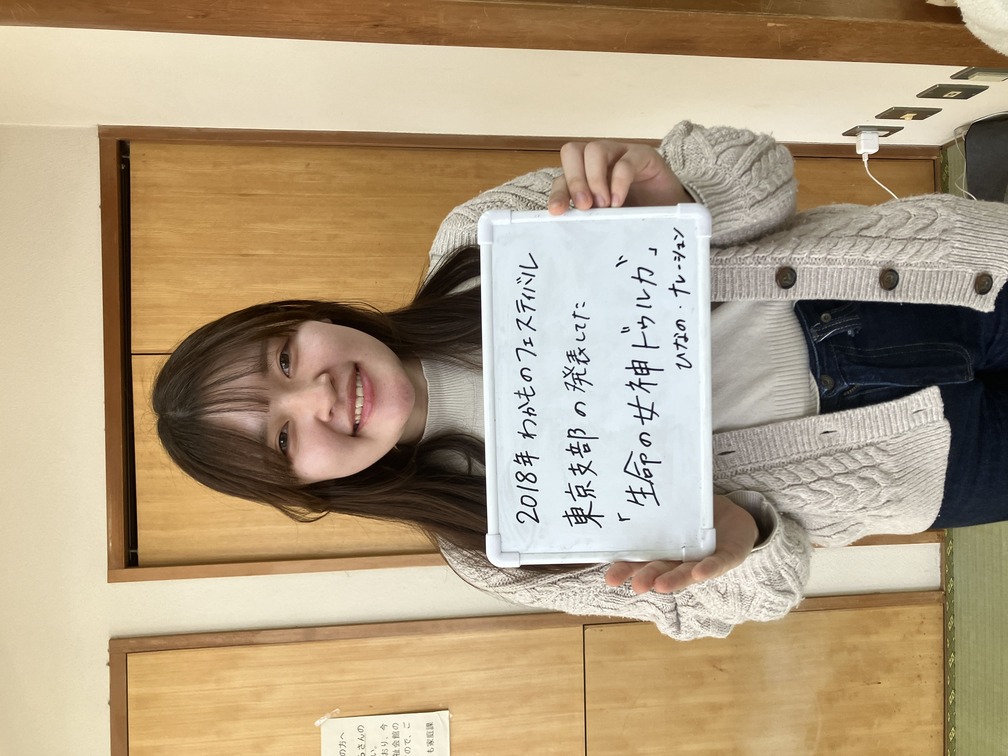 2018年 わかものフェスティバル
東京支部の発表してた
「生命の女神ドゥルガ」
ひなの・ナレーション
の方へ
さんの
い。
おり、今
祉会館の
ので、ご
も家庭課